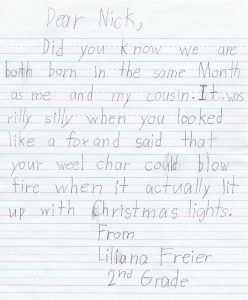 Dear Nick,
Did you know we are
both born in the same Month
as me and my cousin. It was
rilly silly when you looked
like a fox and said that
your weel char could blow
fire when it actually lit
up with Christmas lights.
From
Liliana Freier
2nd Grade